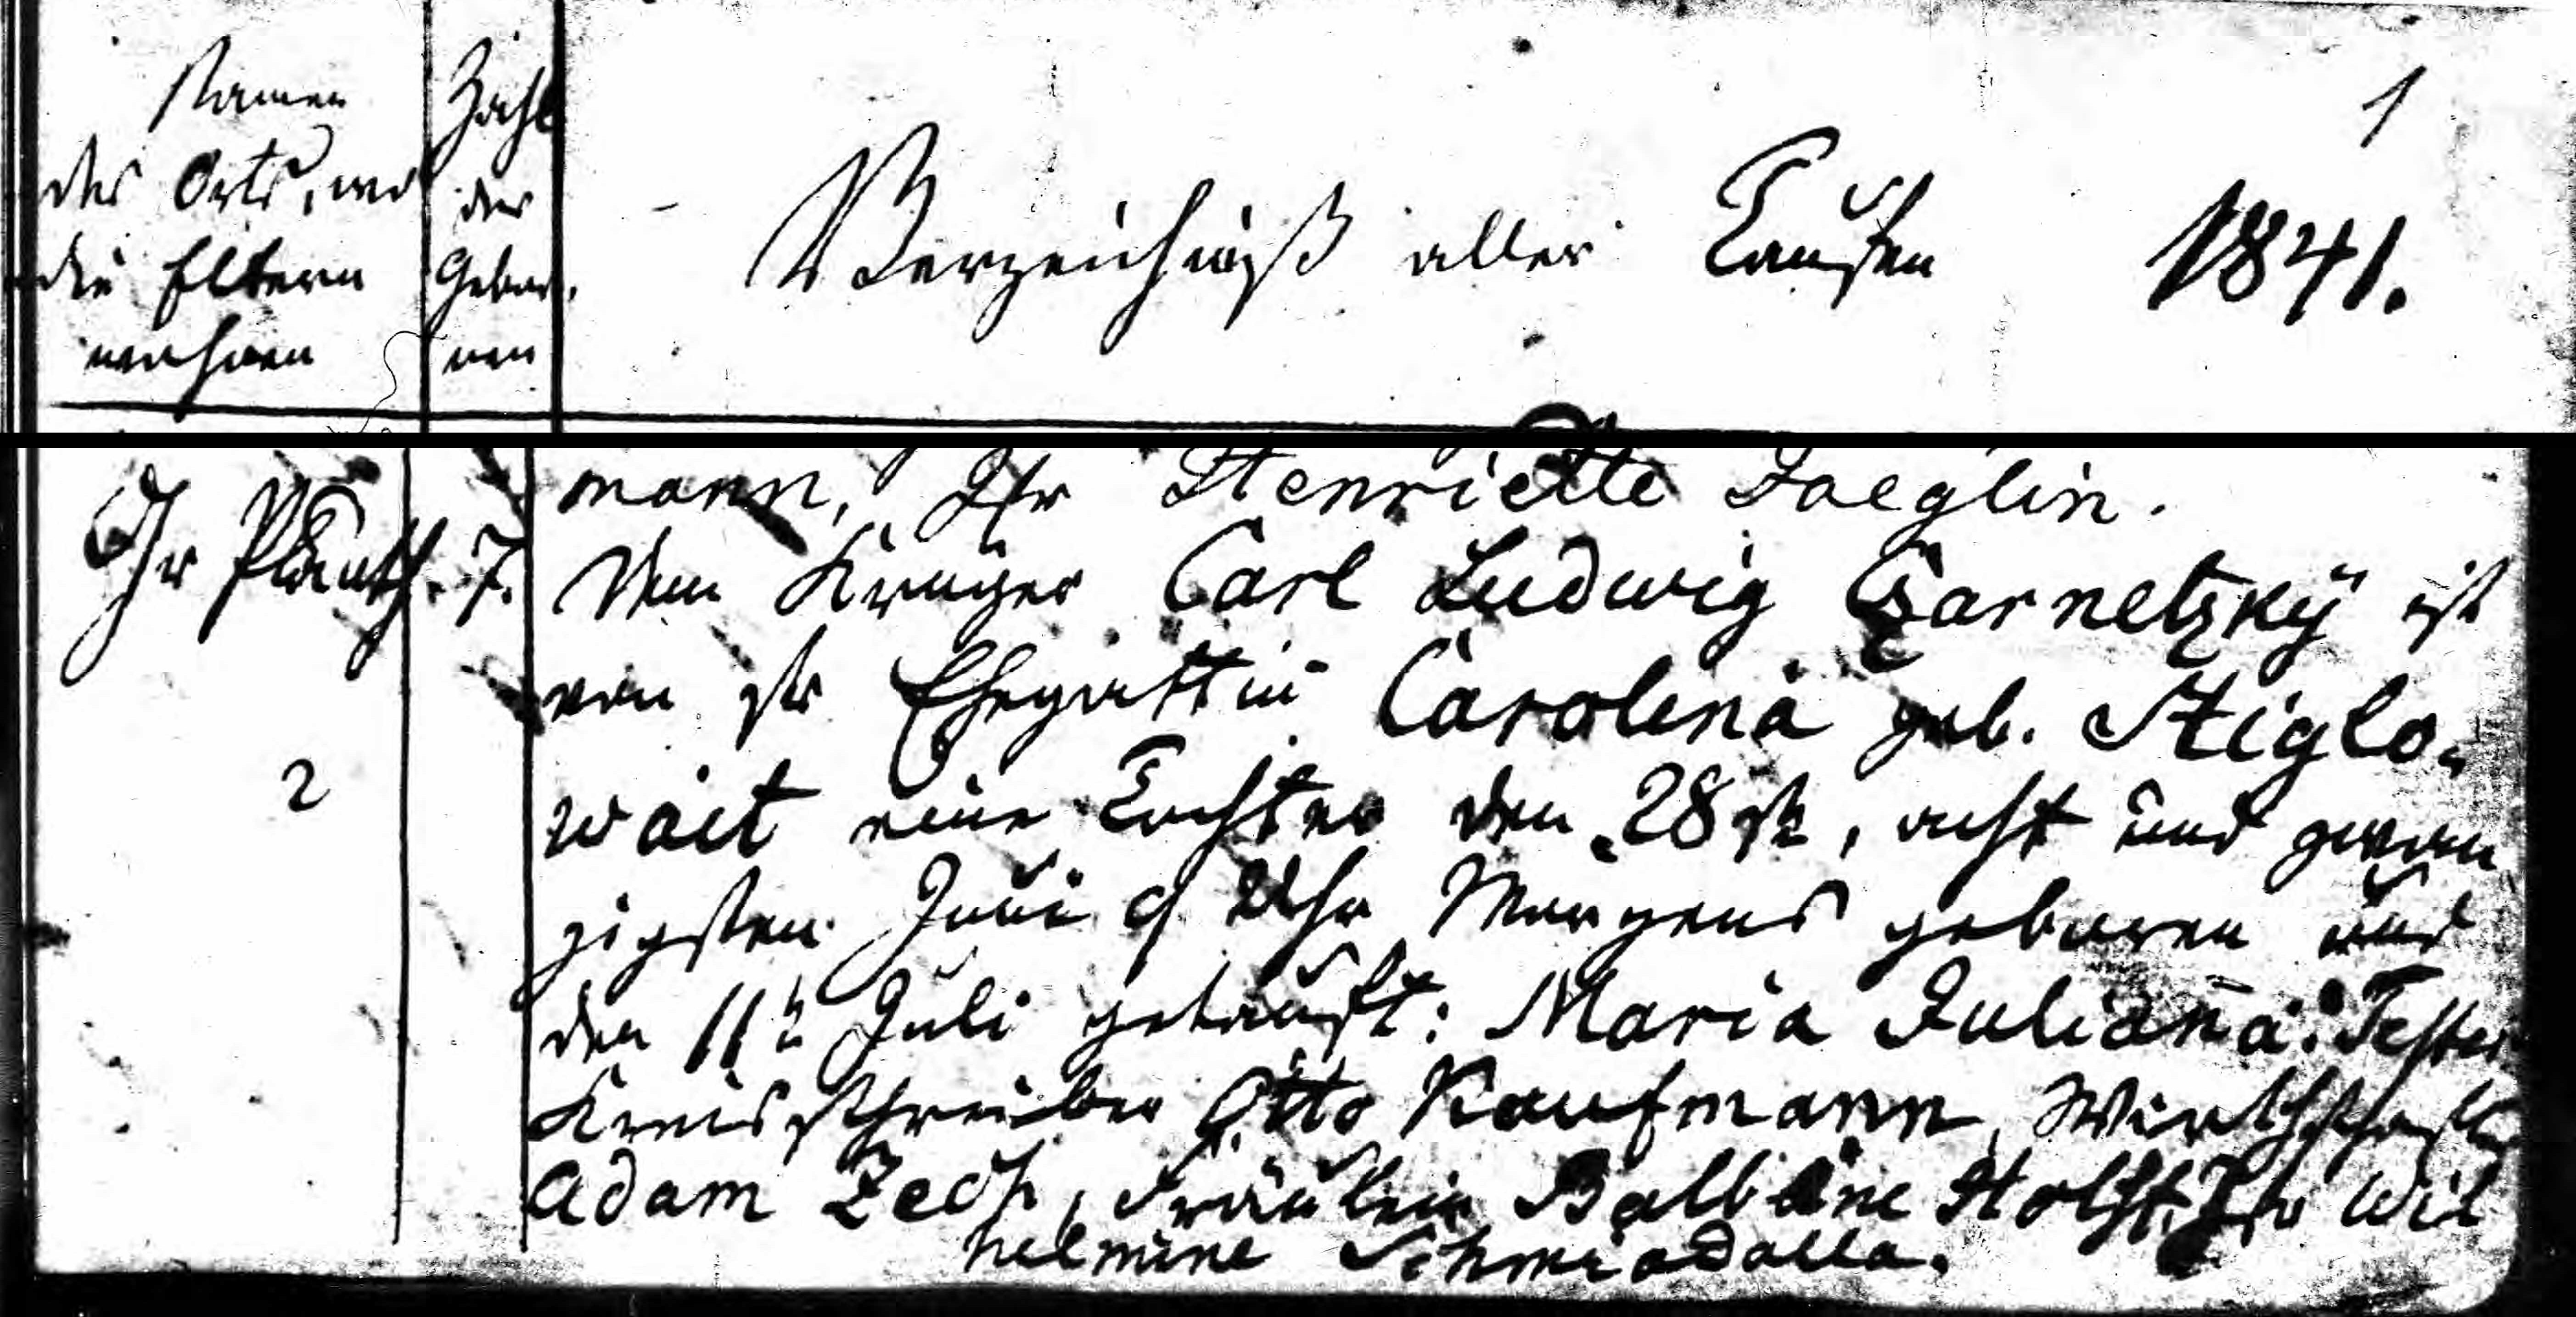 Namen
des Orts, wo
die Eltern
wohnen
Zahl
der
Gebor,
nen
Verzeichniß aller Taufen
1
1841.
mann, Jfr Henriette Jaeglin.
Gr Plauth. 7. Dem Krüger Carl Ludwig Czarnetzky ist
von sr Ehegattin Carolina geb. Stiglo,
2
wait eine Tochter den 28st, acht und zwan
zigsten Juni 9 Uhr Morgens geboren und
den 11t Juli getauft: Maria Juliana. Testes
Kreisschreiber Otto Kaufmann, Wirthschaftr
Adam Zech, Fräulein Balbine Holst, Jfr Wil
helmine Schmiadalla.